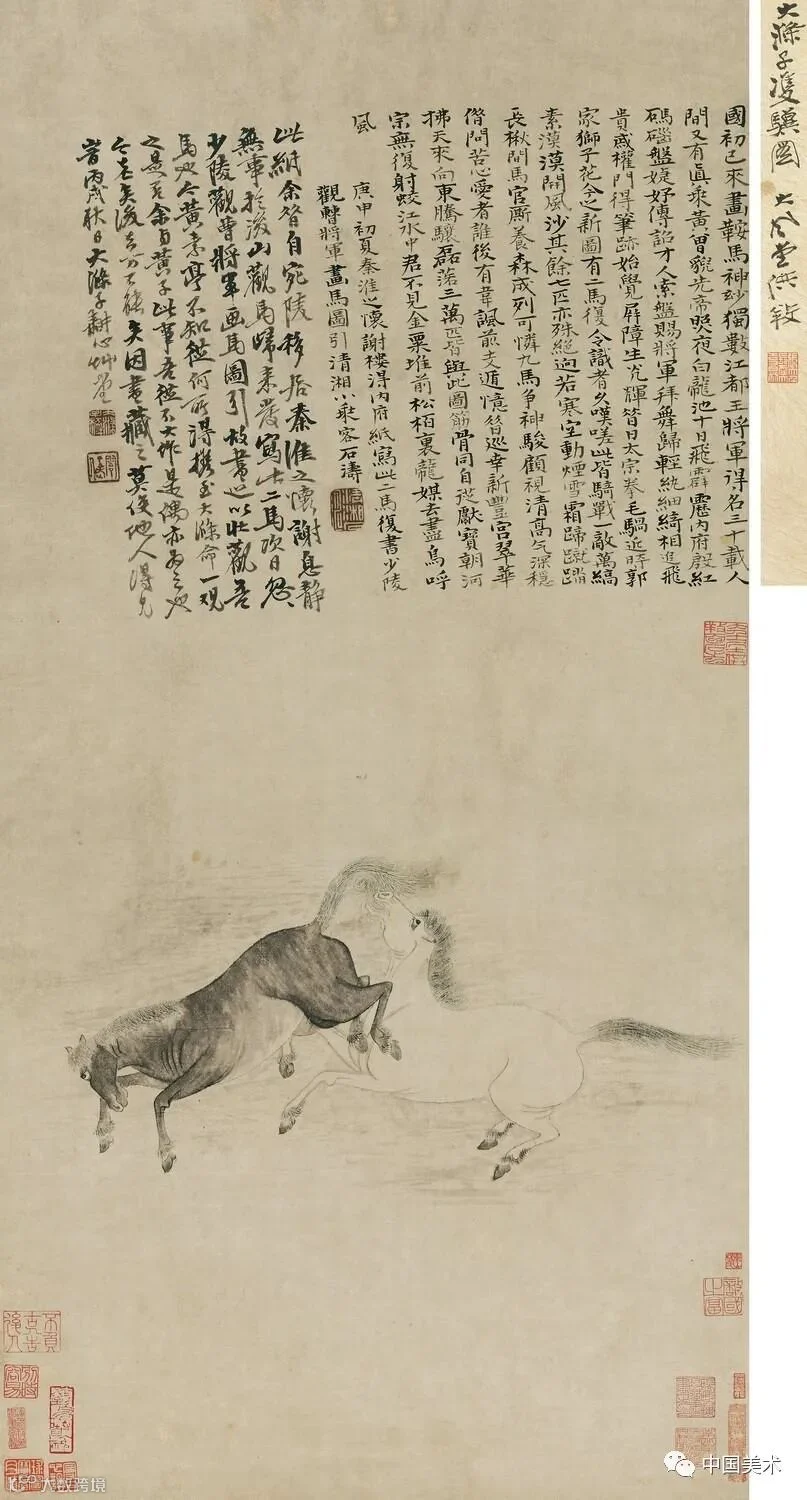 大滌子雙驥圖 大风堂供
國初已來畫鞍馬神妙獨數江都王將軍得名三十載人
間又有真乘黃曾貌先帝照夜白龍池十日飛霹靂內府殷紅
碼碯盤婕妤傳詔才人索盤賜將軍拜舞歸輕紈細綺相追飛
貴戚權門得筆跡始覺屏障生光輝昔日太宗拳毛騧近時郭
家獅子花今之新圖有二馬復令識者久嘆嗟此皆騎戰一敵萬縞
素漠漠開風沙其餘七匹亦殊絕迥若寒空動煙雪霜蹄蹴踏
長楸間馬官厮養森成列可憐九馬爭神駿顧視清高气深穩
借問苦心愛者誰後有韋諷前支遁憶昔巡幸新豐宮翠華
拂天來向東騰驤磊落三萬匹皆與此圖筋骨同自從獻寶朝河
宗無復射蛟江水中君不見金粟堆前松柏裏龍媒去盡鳥呼
風
庚申初夏秦淮之懷謝樓得內府紙寫此二馬復書少陵
觀曹將軍畫馬圖引清湘小乘客石濤
此紙余昔自宛陵移居秦淮之懷謝息静
無事於後山觀馬歸来發寫此二馬次日
少陵觀曹將軍画馬圖引故書以壯觀吾
馬也今黃素亭不知從何所得攜至大滌命一观
之是余與黃子此筆吾從不大作是偶亦為之也
今老矣後去不能矣因書藏之莫使他人得見
昔丙戌秋日大滌子耕心艸堂
敵國之富
別時容易
中国美术
大数跨境